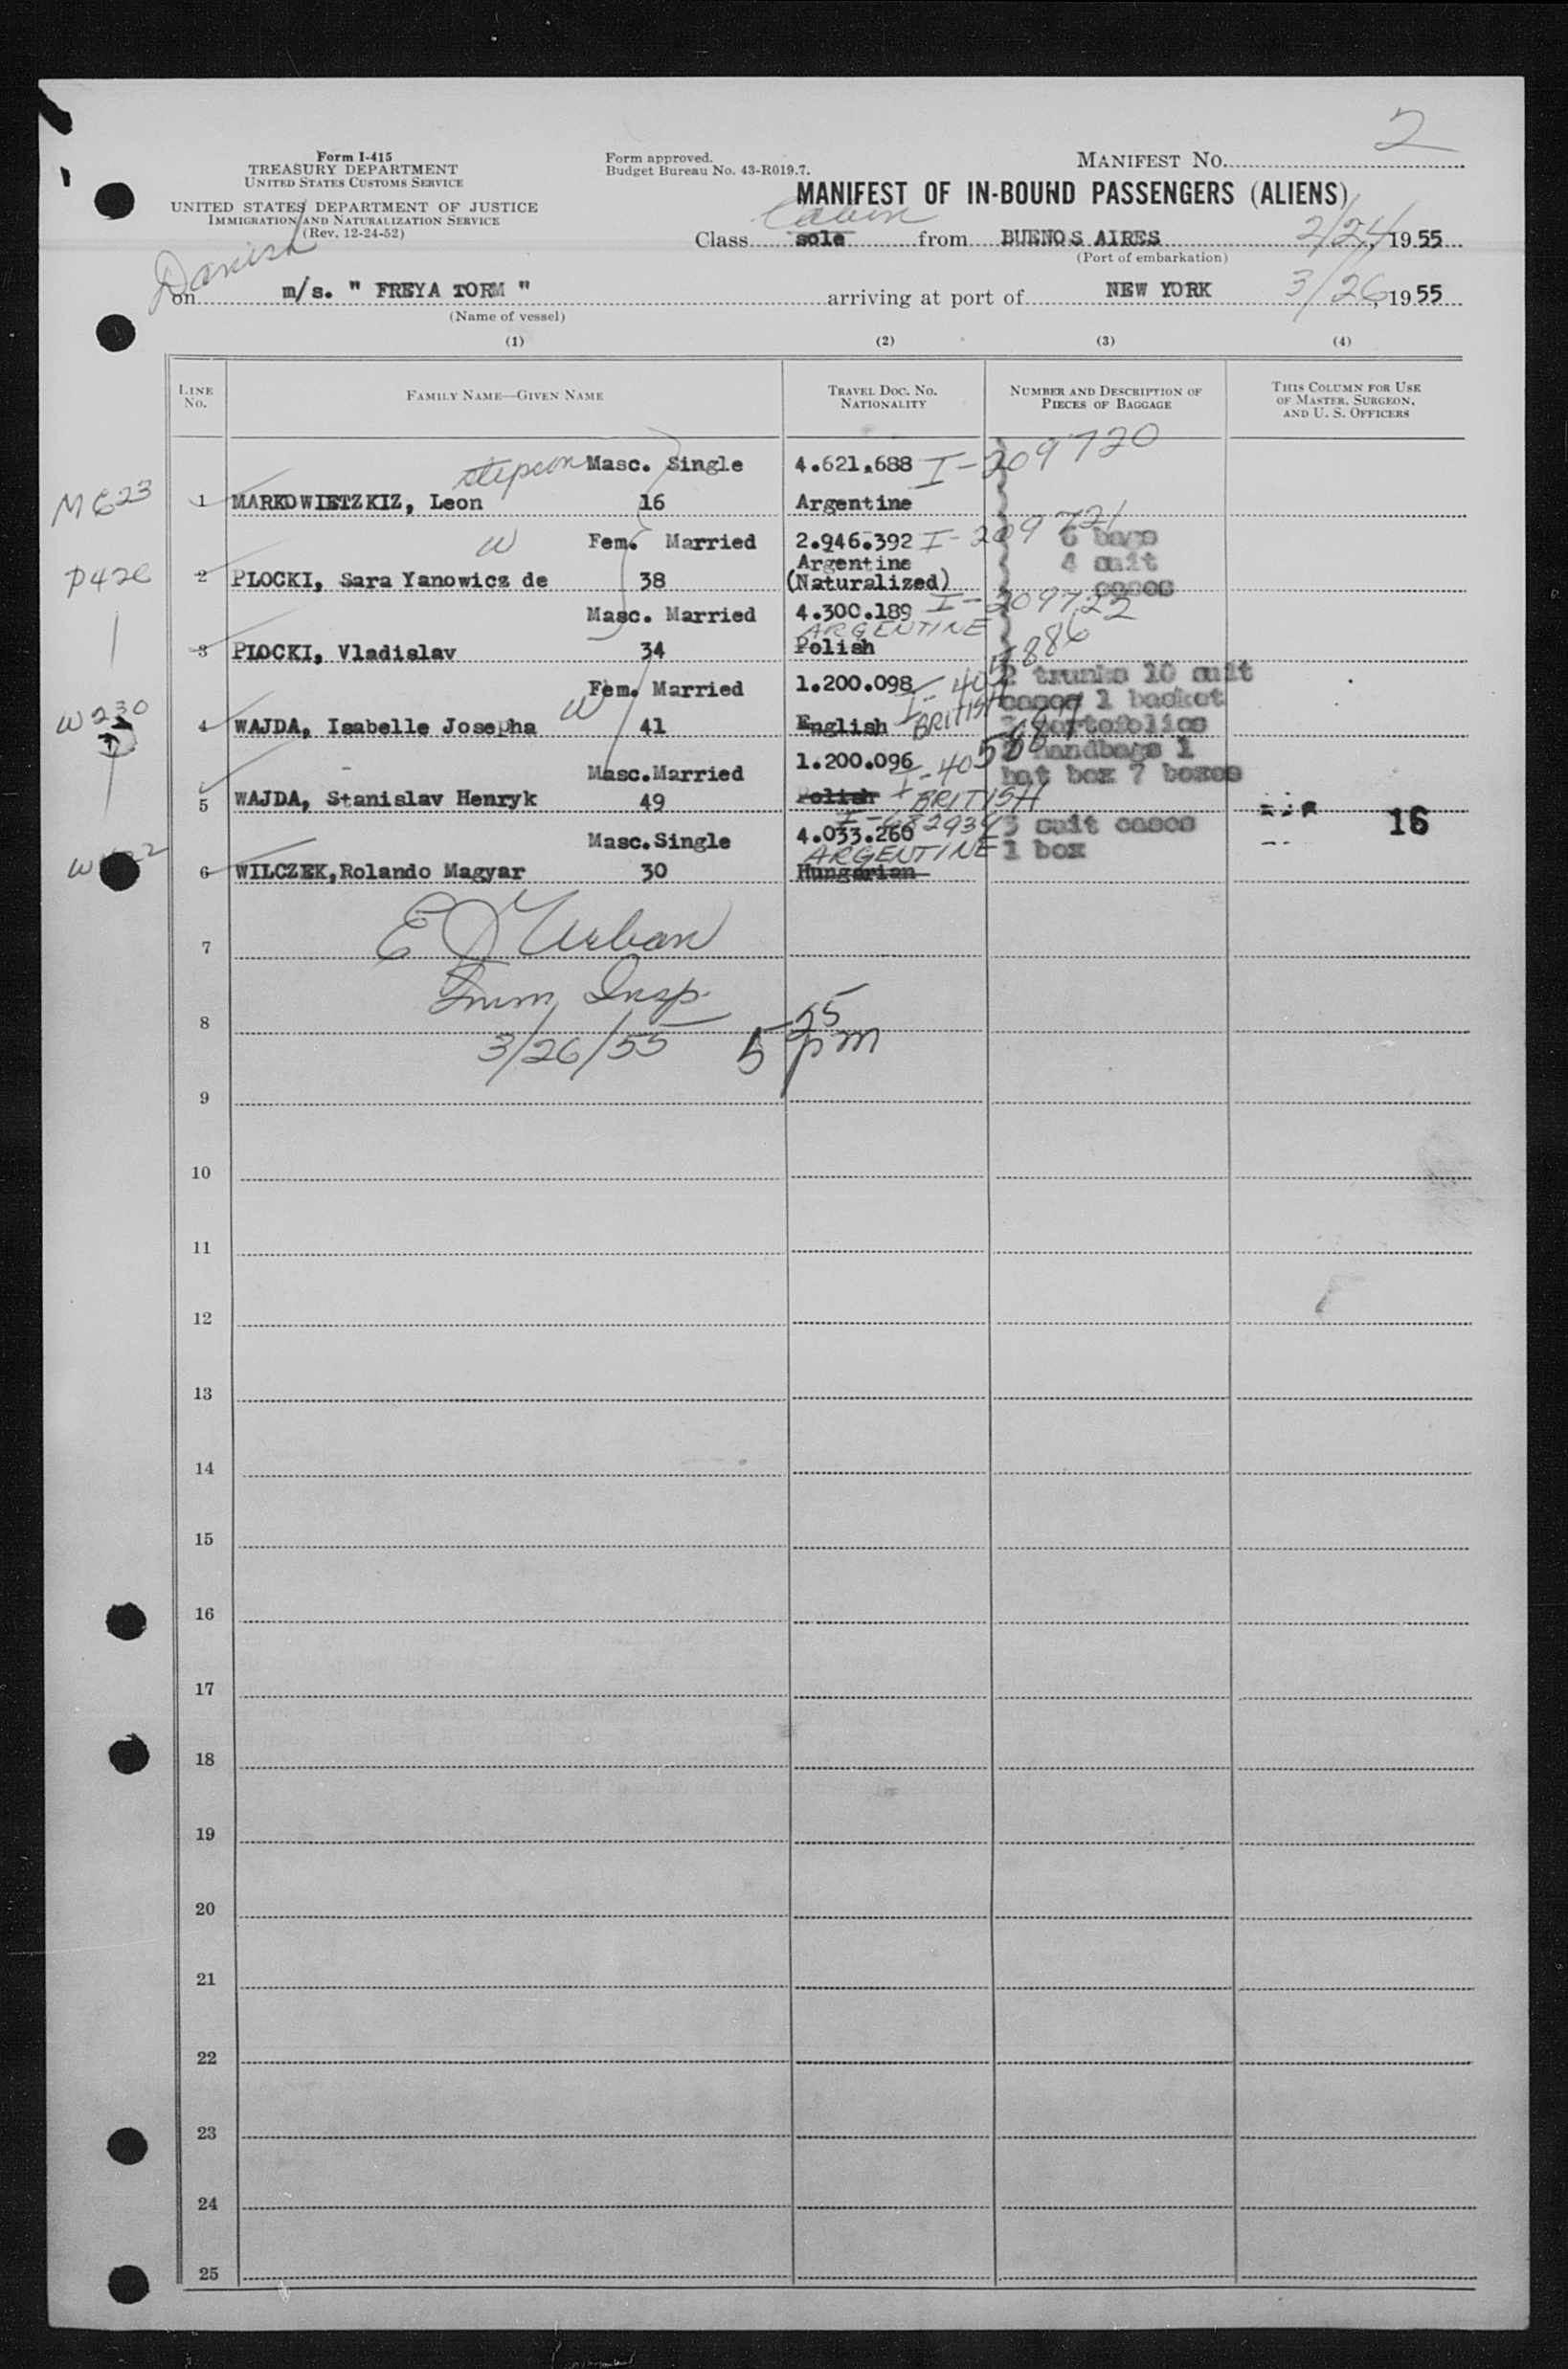 2
Form I-415
TREASURY DEPARTMENT
UNITED STATES CUSTOMS SERVICE
UNITED STATES DEPARTMENT OF JUSTICE
IMMIGRATION AND NATURALIZATION SERVICE
(Rev. 12-24-52)
Form approved.
Budget Bureau No. 43-R019.7.
MANIFEST NO.
MANIFEST OF IN-BOUND PASSENGERS (ALIENS)
Cabin
Class sole from BUENOS AIRES 2/24, 1955
(Port of embarkation)
Danish
on m/s. " FREYA TORM " arriving at port of NEW YORK 3/26, 1955
(Name of vessel)
(1) (2) (3) (4)
LINE NO. FAMILY NAME—GIVEN NAME TRAVEL DOC. NO. NATIONALITY NUMBER AND DESCRIPTION OF PIECES OF BAGGAGE THIS COLUMN FOR USE OF MASTER, SURGEON, AND U. S. OFFICERS
stepson Masc. Single 4.621.688 I-209720
M623 1 MARKOWIETZKIZ, Leon 16 Argentine
W Fem. Married 2.946.392 I-209721 6 bags
Argentine 4 suit
P420 2 PLOCKI, Sara Yanowicz de 38 (Naturalized) cases
Masc. Married 4.300.189 I-209722
ARGENTINE
3 PLOCKI, Vladislav 34 Polish
Fem. Married 1.200.098 I-405886 2 trunks 10 suit
cases 1 basket
W230 4 WAJDA, Isabelle Josepha W 41 English BRITISH portofolios
Masc. Married 1.200.096 I-405887 handbags 1
hat box 7 boxes
5 WAJDA, Stanislav Henryk 49 Polish BRITISH
I-682939
Masc. Single 4.033.260 3 suit cases 16
ARGENTINE 1 box
6 WILCZEK, Rolando Magyar 30 Hungarian
E J Urban
7
Imm. Insp.
8
3/26/55 5 25 pm
9
10
11
12
13
14
15
16
17
18
19
20
21
22
23
24
25